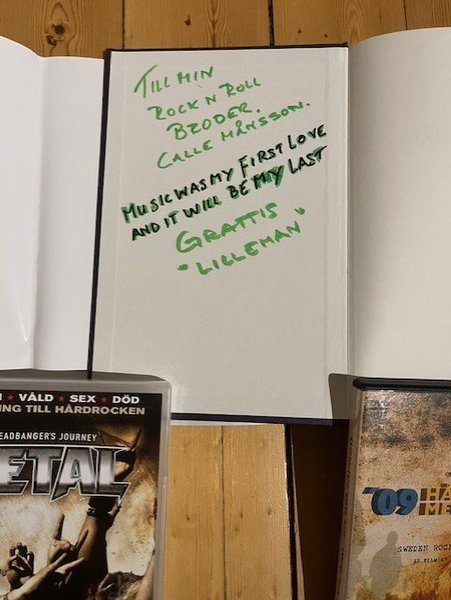 TILL MIN
ROCK N ROLL
BRODER.
CALLE MÅNSSON.
MUSIC WAS MY FIRST LOVE
AND IT WILL BE MY LAST
GRATTIS
"LILLEMAN"
★ VÅLD ★ SEX ★ DÖD
ING TILL HÅRDROCKEN
EADBANGER'S JOURNEY
ETAL
'09 HÄ
ME
SWEDEN ROC